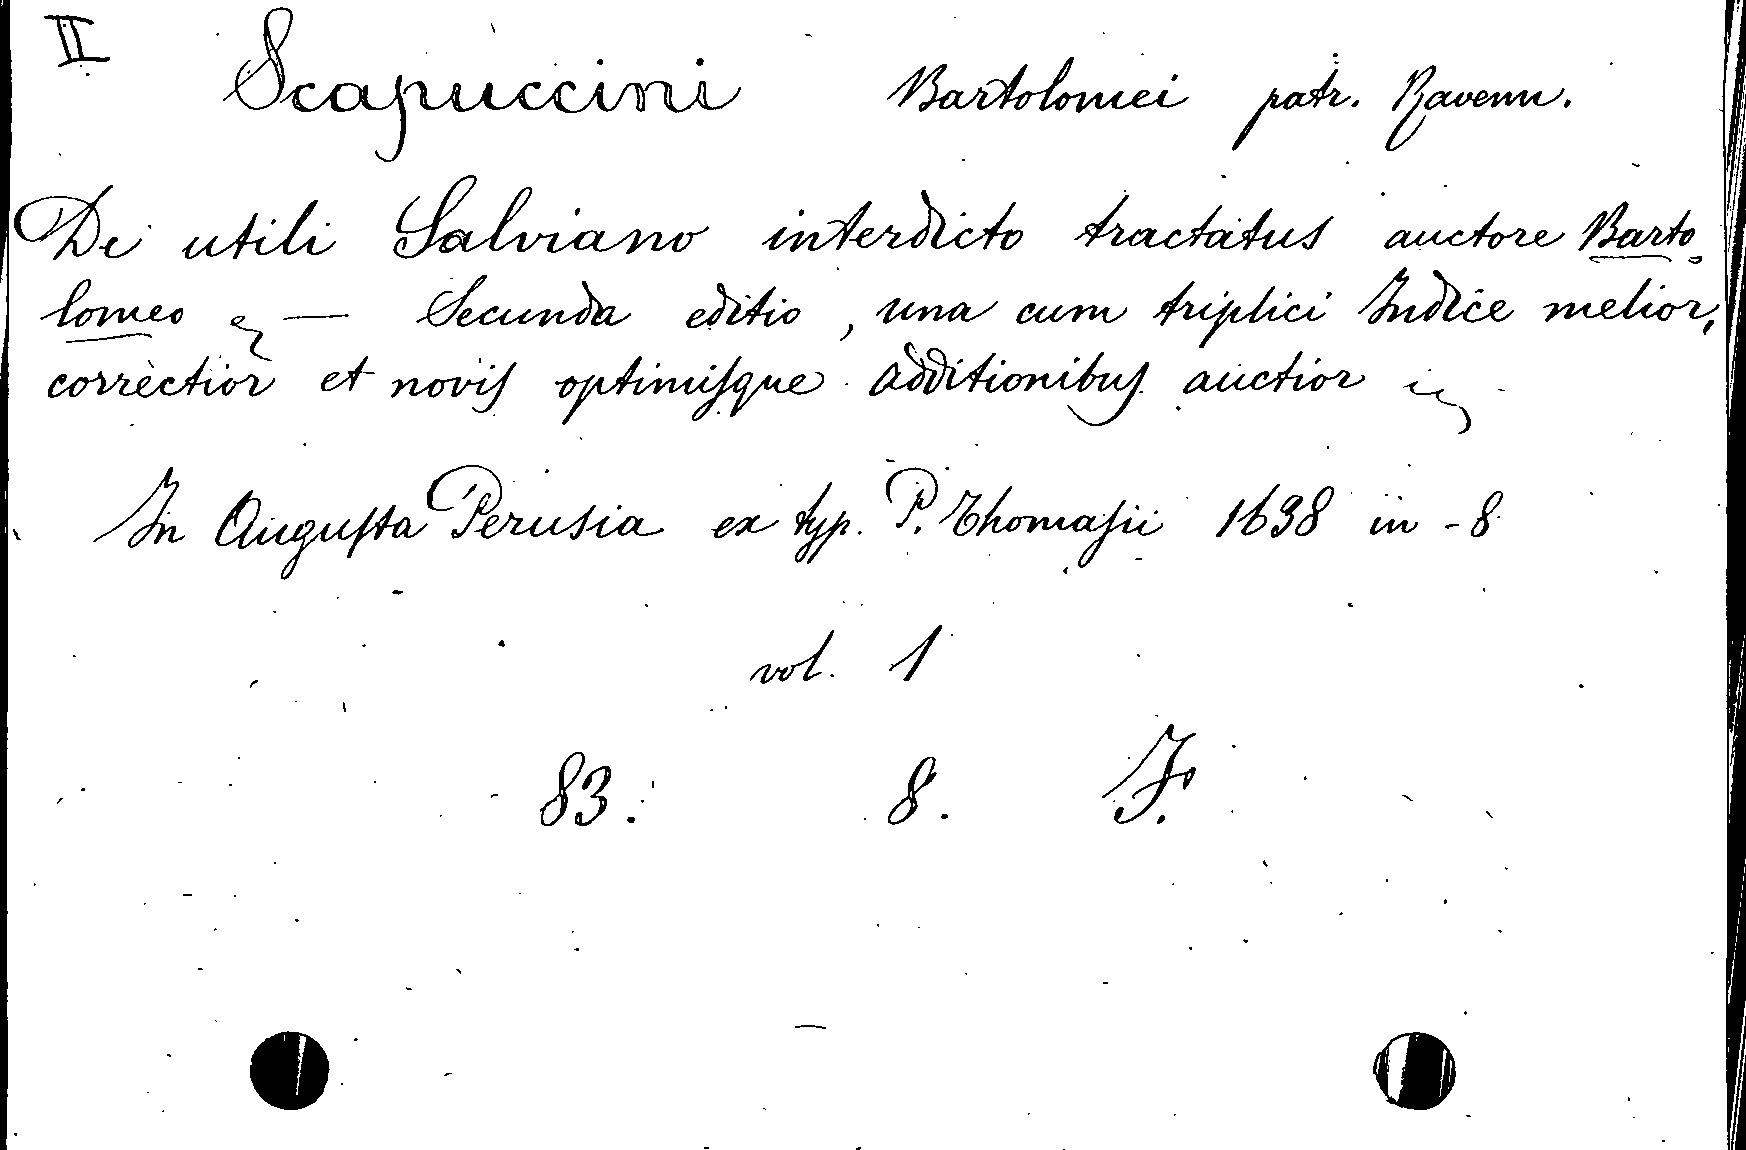 II
Scapuccini Bartolomei patr. Ravenn.
De utili Salviano interdicto tractatus auctore Barto
lomeo — Secunda editio, una cum triplici Indice melior,
correctior et novis optimisque additionibus auctior
In Augusta Perusia ex typ. P. Thomasii 1638 in-8
vol. 1
83. 8. F.